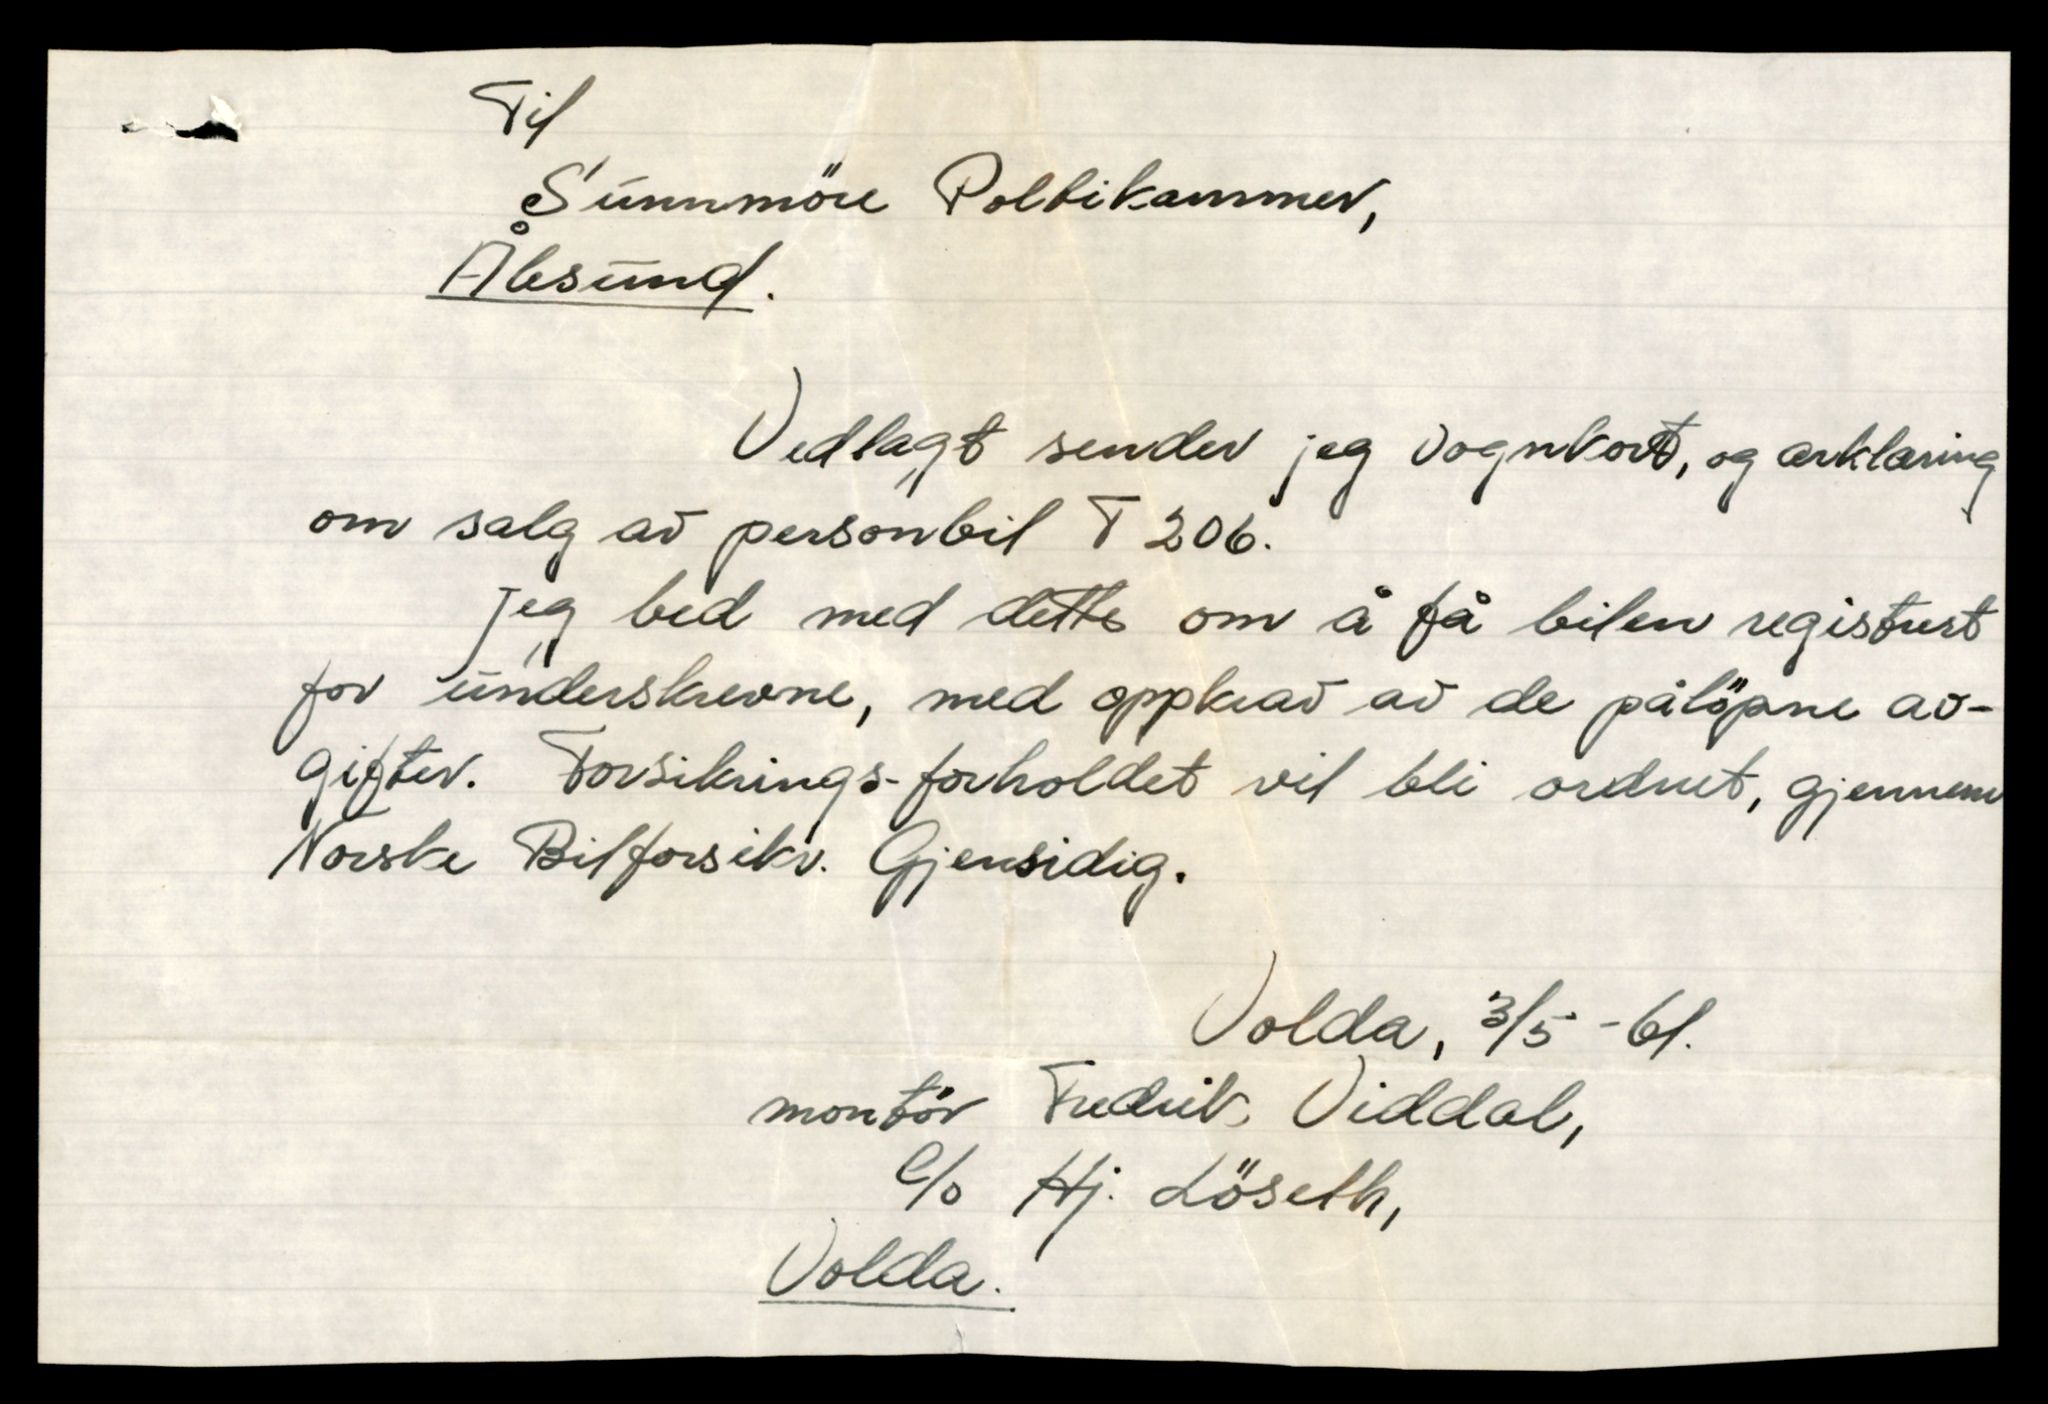 Til
Sunnmöre Politikammer,
Ålesund.
Vedlagt sender jeg vognkort, og ærklæring
om salg av personbil T 206.
Jeg bed med dette om å få bilen registrert
for underskrevne, med oppkrav av de pålöpne av-
gifter. Forsikrings-forholdet vil bli ordnet, gjennem
Norske Bilforsikr. Gjensidig.
Volda, 3/5 -61.
montör Fredrik Viddal,
c/o Hj. Löseth,
Volda.